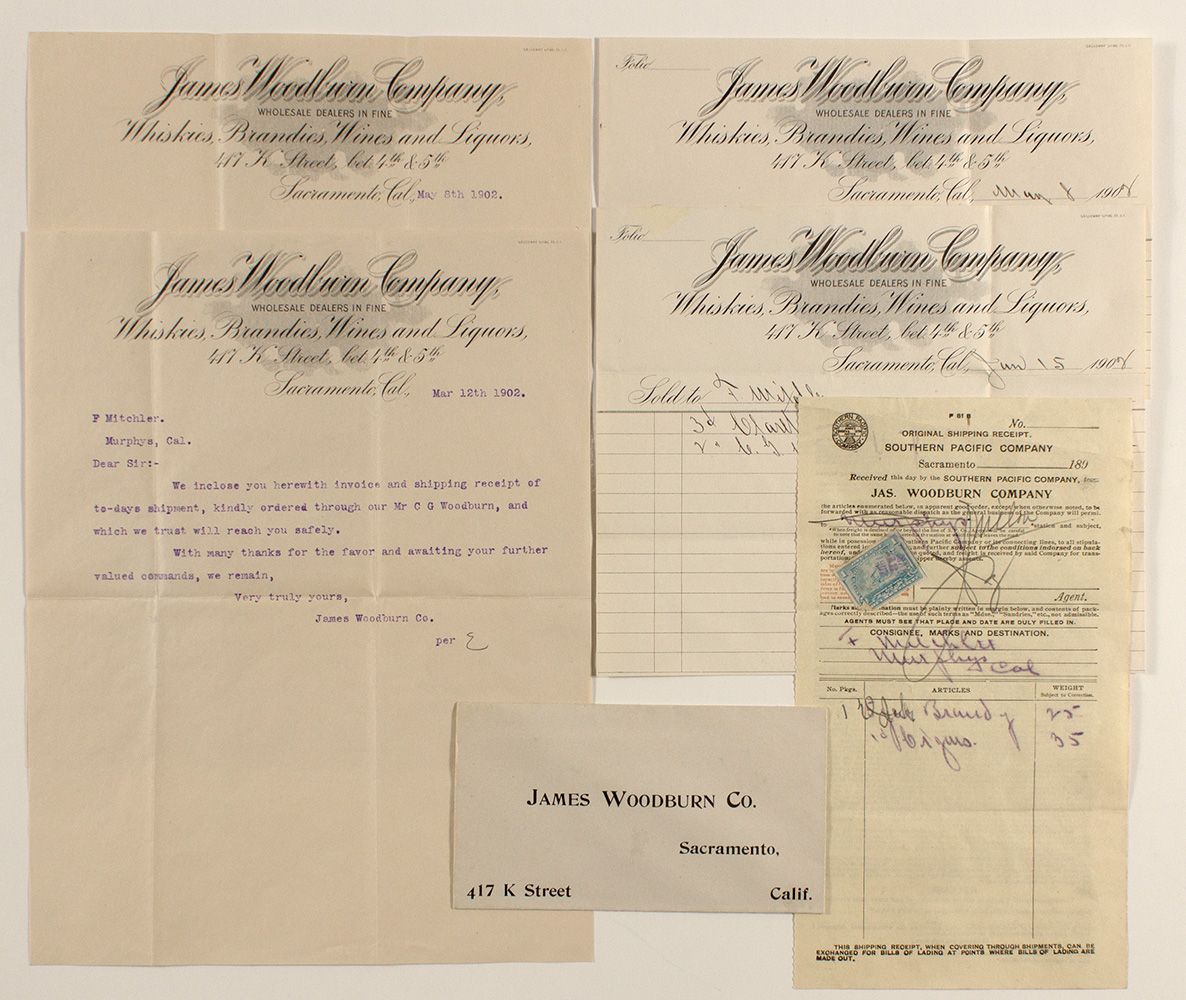 James Woodburn Company,
WHOLESALE DEALERS IN FINE
Whiskies, Brandies, Wines and Liquors,
417 K Street, bet. 4th & 5th
Sacramento, Cal., May 8th 1902.
James Woodburn Company,
WHOLESALE DEALERS IN FINE
Whiskies, Brandies, Wines and Liquors,
417 K Street, bet. 4th & 5th
Sacramento, Cal., Mar 12th 1902.
F Mitchler.
Murphys, Cal.
Dear Sir:-
We inclose you herewith invoice and shipping receipt of
to-days shipment, kindly ordered through our Mr C G Woodburn, and
which we trust will reach you safely.
With many thanks for the favor and awaiting your further
valued commands, we remain,
Very truly yours,
James Woodburn Co.
per
Folio
James Woodburn Company,
WHOLESALE DEALERS IN FINE
Whiskies, Brandies, Wines and Liquors,
417 K Street, bet. 4th & 5th
Sacramento, Cal., May 8 1902
Folio
James Woodburn Company,
WHOLESALE DEALERS IN FINE
Whiskies, Brandies, Wines and Liquors,
417 K Street, bet. 4th & 5th
Sacramento, Cal., Jan 15 1902
Sold to F
Claret
P 61 B
No.
ORIGINAL SHIPPING RECEIPT.
SOUTHERN PACIFIC COMPANY
Sacramento 189
Received this day by the SOUTHERN PACIFIC COMPANY, from
JAS. WOODBURN COMPANY
the articles enumerated below, in apparent good order, except when otherwise noted, to be
forwarded with as reasonable dispatch as the general business of the Company will permit.
to Murphys station and subject,
while in possession of Southern Pacific Company or its connecting lines, to all stipula-
tions entered and further subject to the conditions indorsed on back
hereof, quoted, and freight is received by said Company for trans-
portation upper hereby assents.
Agent.
Marks must be plainly written in margin below, and contents of pack-
ages correctly described—the use of such terms as "Mdse," "Sundries," etc., not admissible.
AGENTS MUST SEE THAT PLACE AND DATE ARE DULY FILLED IN.
CONSIGNEE, MARKS AND DESTINATION.
F Mitchler
Murphys Cal
No. Pkgs. ARTICLES WEIGHT
Subject to Correction.
1 Brandy 25
Cigars. 35
THIS SHIPPING RECEIPT, WHEN COVERING THROUGH SHIPMENTS, CAN BE
EXCHANGED FOR BILLS OF LADING AT POINTS WHERE BILLS OF LADING ARE
MADE OUT.
JAMES WOODBURN CO.
Sacramento,
417 K Street Calif.